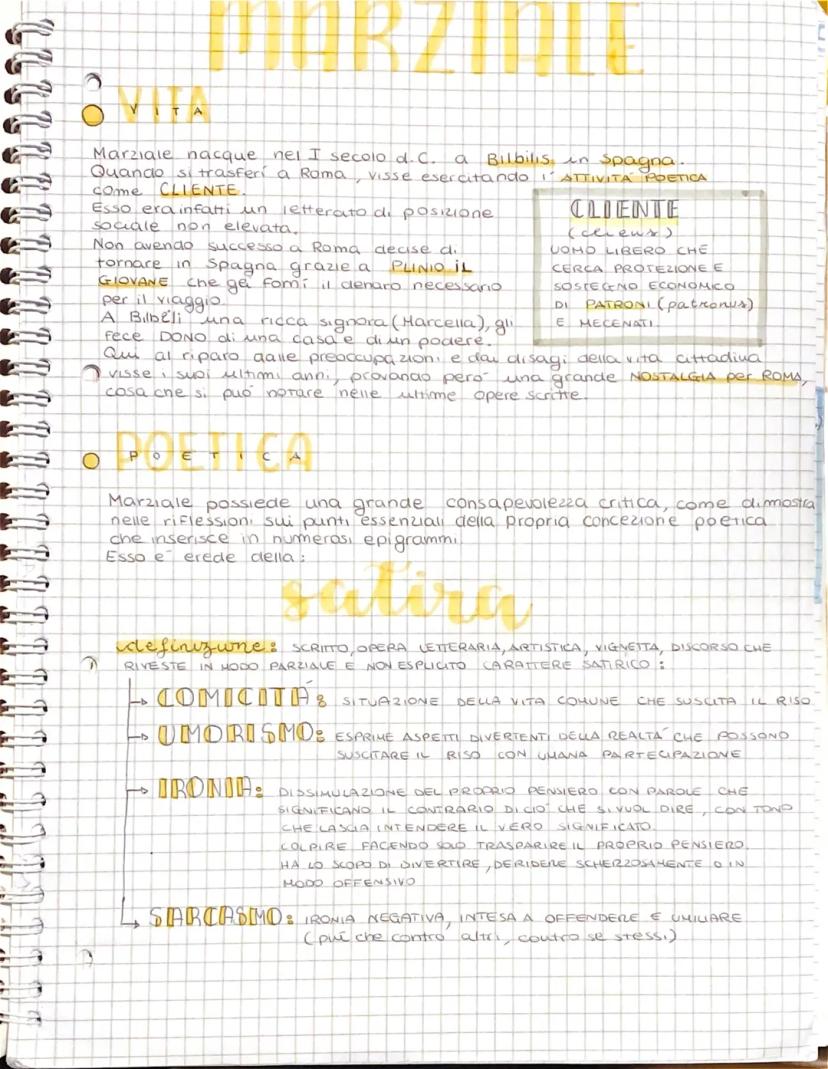 MARZIALE
VITA
VITA
Marziale nacque nel I secolo d.C. a Bilbilis in Spagna.
Quando si trasferí a Roma, visse esercitando l'ATTIVITÁ POETICA
come CLIENTE.
Esso era infatti un letterato di posizione
sociale non elevata.
Non avendo successo a Roma decise di
tornare in Spagna grazie a PLINIO IL
GIOVANE che gli forní il denaro necessario
per il viaggio.
A Bilbili una ricca signora (Marcella), gli
fece DONO di una casa e di un podere.
Qui al riparo dalle preoccupazioni e dai disagi della vita cittadina
visse i suoi ultimi anni, provando peró una grande NOSTALGIA per ROMA,
cosa che si puó notare nelle ultime opere scritte.
CLIENTE
(cliens)
UOMO LIBERO CHE
CERCA PROTEZIONE E
SOSTEGNO ECONOMICO
DI PATRONI (patronus)
E MECENATI.
POETICA
POETICA
Marziale possiede una grande consapevolezza critica, come dimostra
nelle riflessioni sui punti essenziali della propria concezione poetica
che inserisce in numerosi epigrammi.
Esso é erede della:
satira
definizione: SCRITTO, OPERA LETTERARIA, ARTISTICA, VIGNETTA, DISCORSO CHE
RIVESTE IN MODO PARZIALE E NON ESPLICITO CARATTERE SATIRICO:
→ COMICITÁ: SITUAZIONE DELLA VITA COMUNE CHE SUSCITA IL RISO
→ UMORISMO: ESPRIME ASPETTI DIVERTENTI DELLA REALTÁ CHE POSSONO
SUSCITARE IL RISO CON UMANA PARTECIPAZIONE
→ IRONIA: DISSIMULAZIONE DEL PROPRIO PENSIERO CON PAROLE CHE
SIGNIFICANO IL CONTRARIO DI CIÓ CHE SI VUOL DIRE, CON TONO
CHE LASCIA INTENDERE IL VERO SIGNIFICATO.
COLPIRE FACENDO SOLO TRASPARIRE IL PROPRIO PENSIERO.
HA LO SCOPO DI DIVERTIRE, DERIDERE SCHERZOSAMENTE O IN
MODO OFFENSIVO
→ SARCASMO: IRONIA NEGATIVA, INTESA A OFFENDERE E UMILIARE
(piú che contro altri, contro se stessi)